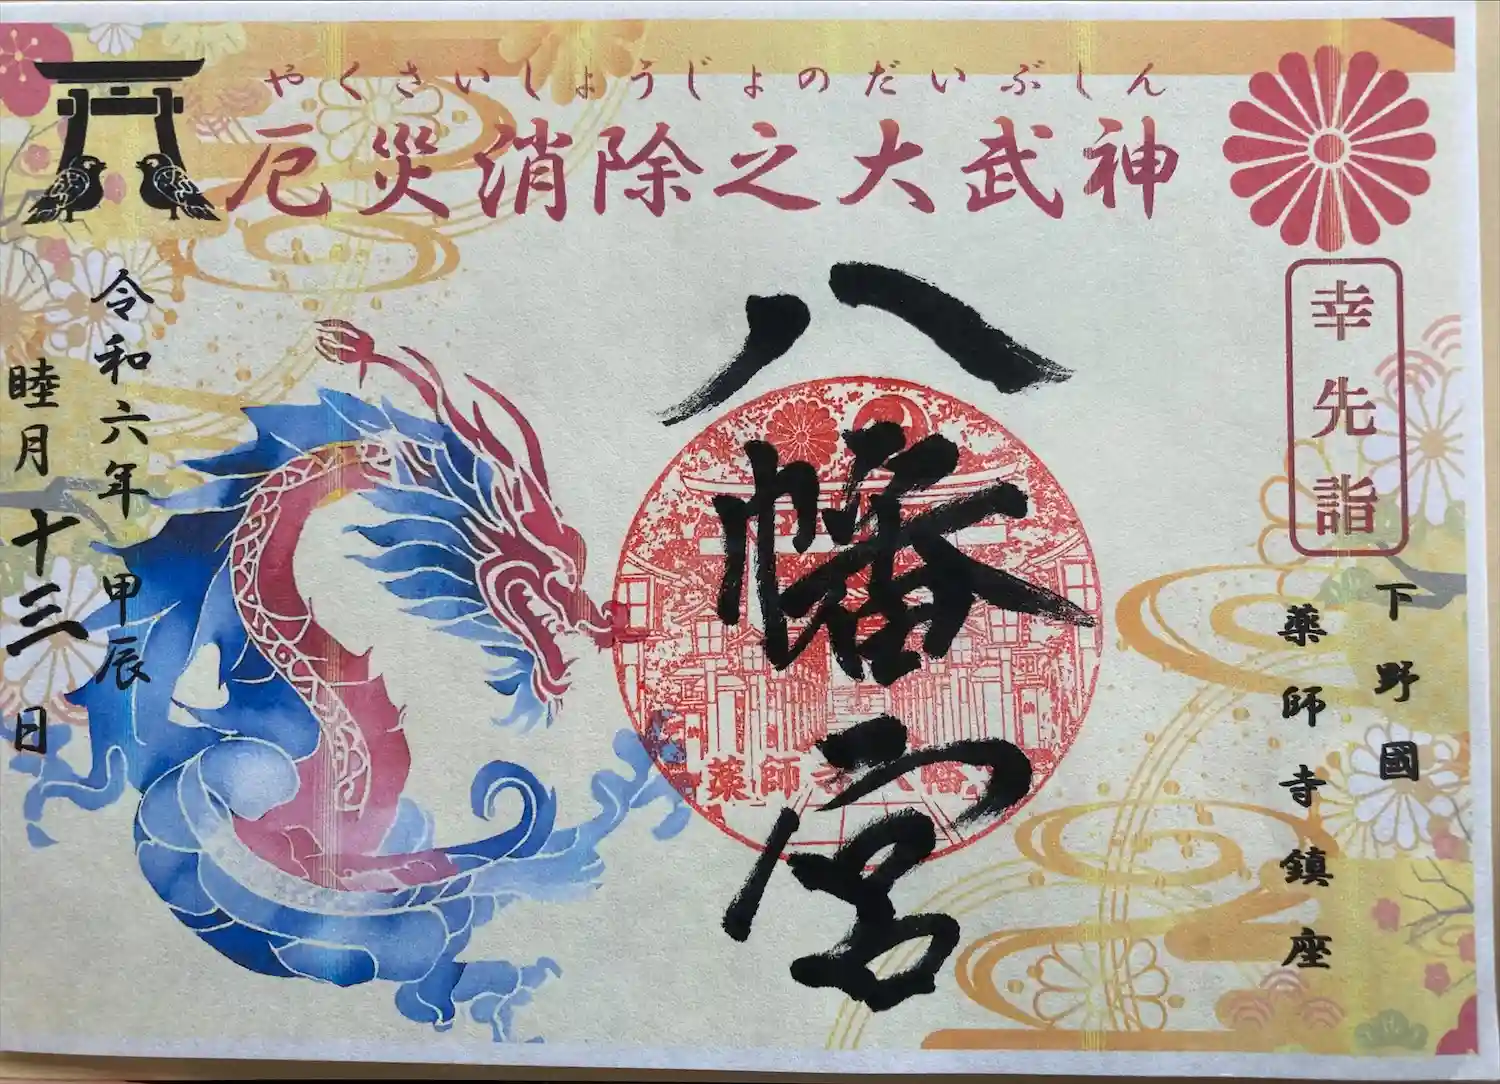 やくさいしょうじょのだいぶしん
厄災消除之大武神
幸先詣
下野國
薬師寺鎮座
八幡宮
薬師寺八幡
令和六年甲辰
睦月十三日